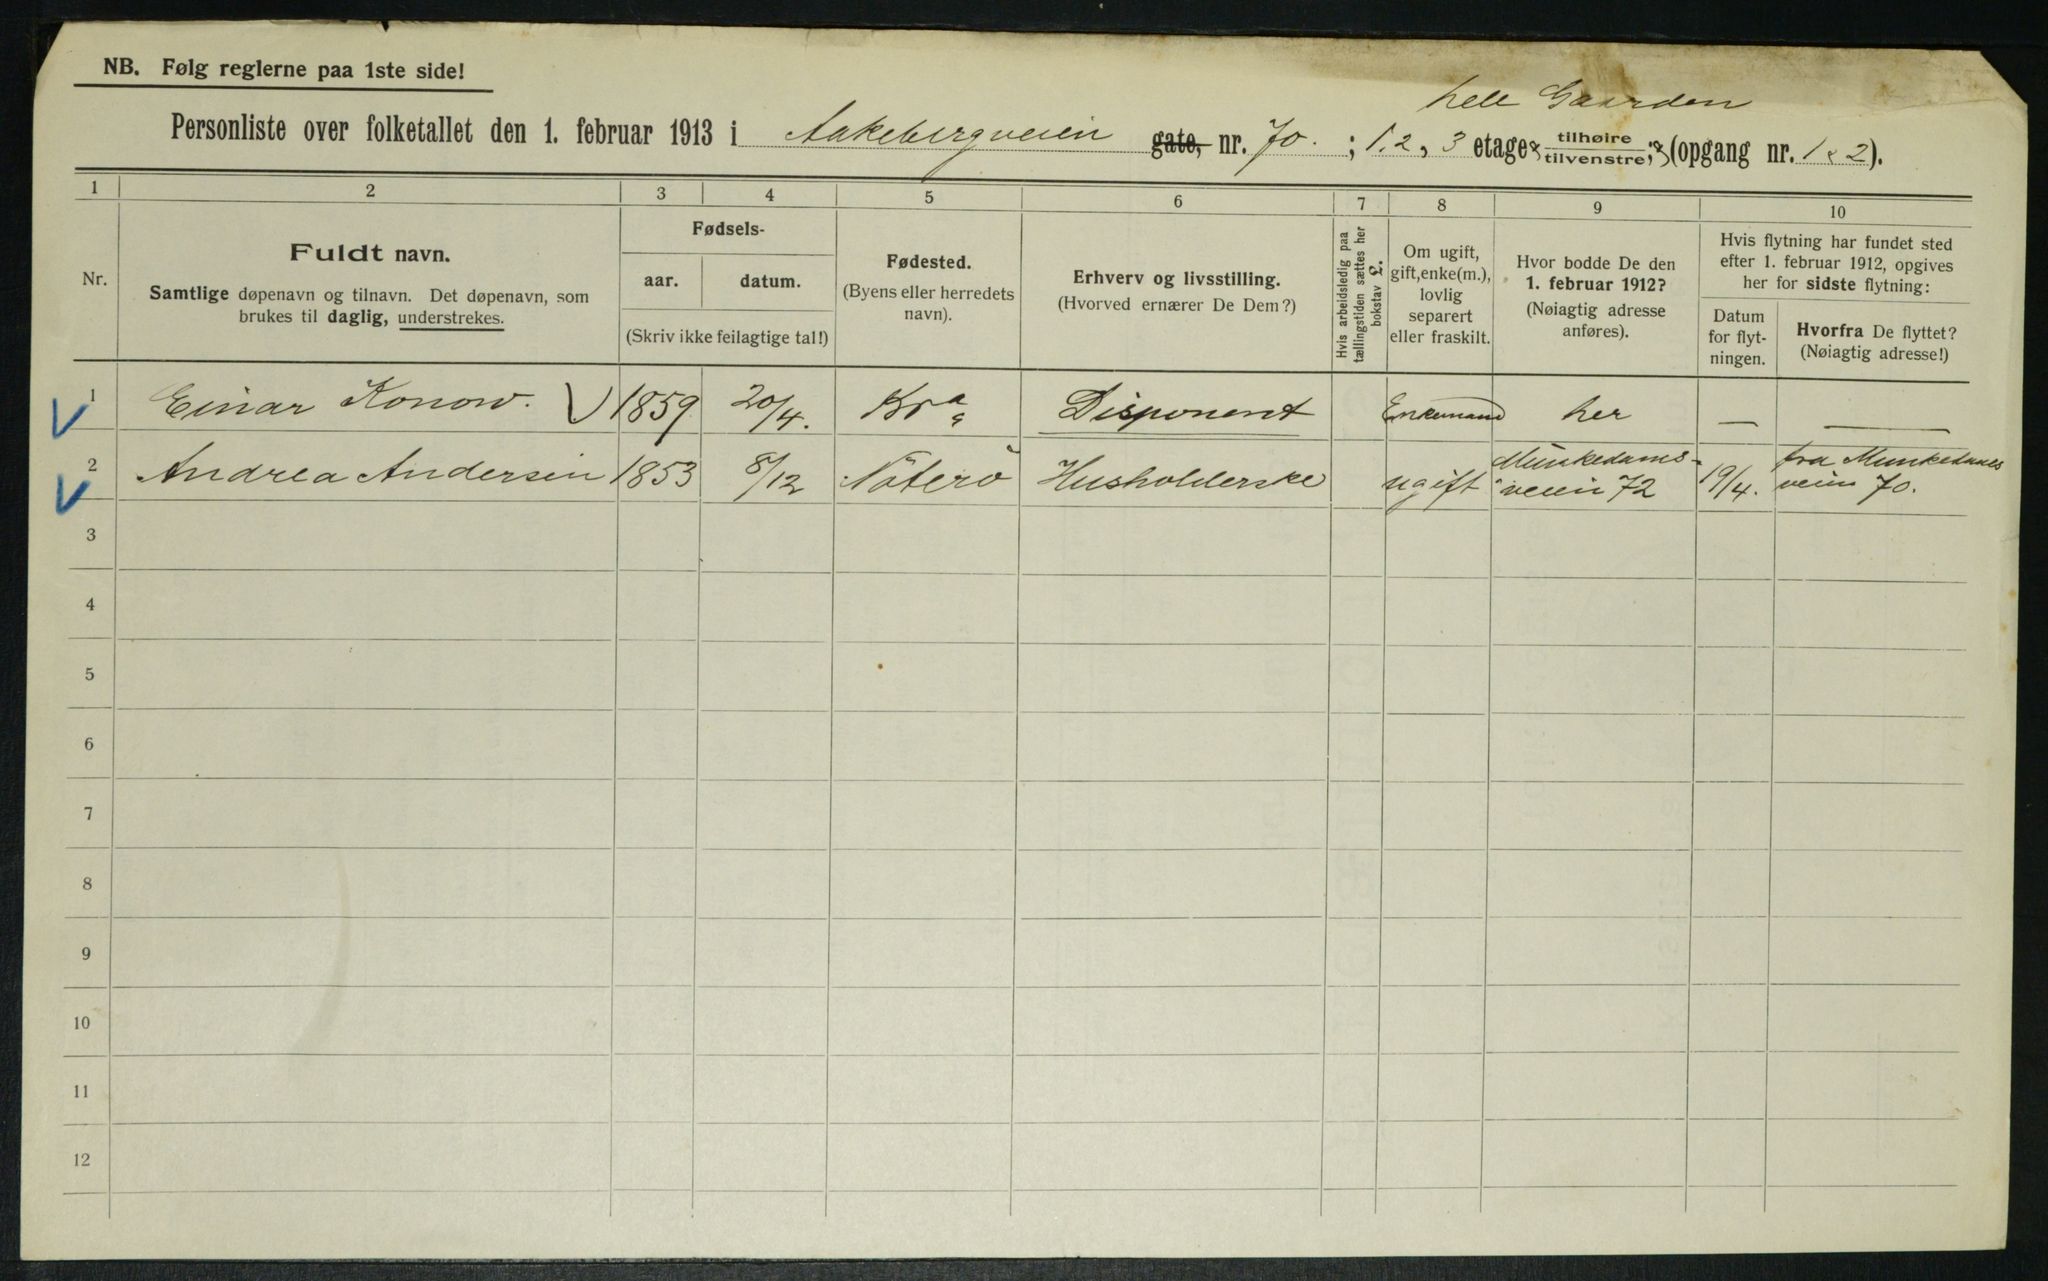 NB. Følg reglerne paa 1ste side!
hele Gaarden
Personliste over folketallet den 1. februar 1913 i Aakebergveien gate, nr. 70. ; 1, 2, 3 etage tilhøire tilvenstre; (opgang nr. 1 & 2).
1 2 3 4 5 6 7 8 9 10
Nr.
Fuldt navn.
Samtlige døpenavn og tilnavn. Det døpenavn, som
brukes til daglig, understrekes.
Fødsels-
aar. datum.
(Skriv ikke feilagtige tal!)
Fødested.
(Byens eller herredets
navn).
Erhverv og livsstilling.
(Hvorved ernærer De Dem?)
Hvis arbeidsledig paa
tællingstiden sættes her
bokstav L.
Om ugift,
gift, enke(m.),
lovlig
separert
eller fraskilt.
Hvor bodde De den
1. februar 1912?
(Nøiagtig adresse
anføres).
Hvis flytning har fundet sted
efter 1. februar 1912, opgives
her for sidste flytning:
Datum
for flyt-
ningen.
Hvorfra De flyttet?
(Nøiagtig adresse!)
1 Einar Konow. 1859 20/4. Kra Disponent Enkemand her — —
2 Andrea Andersen 1853 8/12 Nöterö Husholderske ugift Munkedams-
veien 72 19/4. fra Munkedams
veien 70.
3
4
5
6
7
8
9
10
11
12